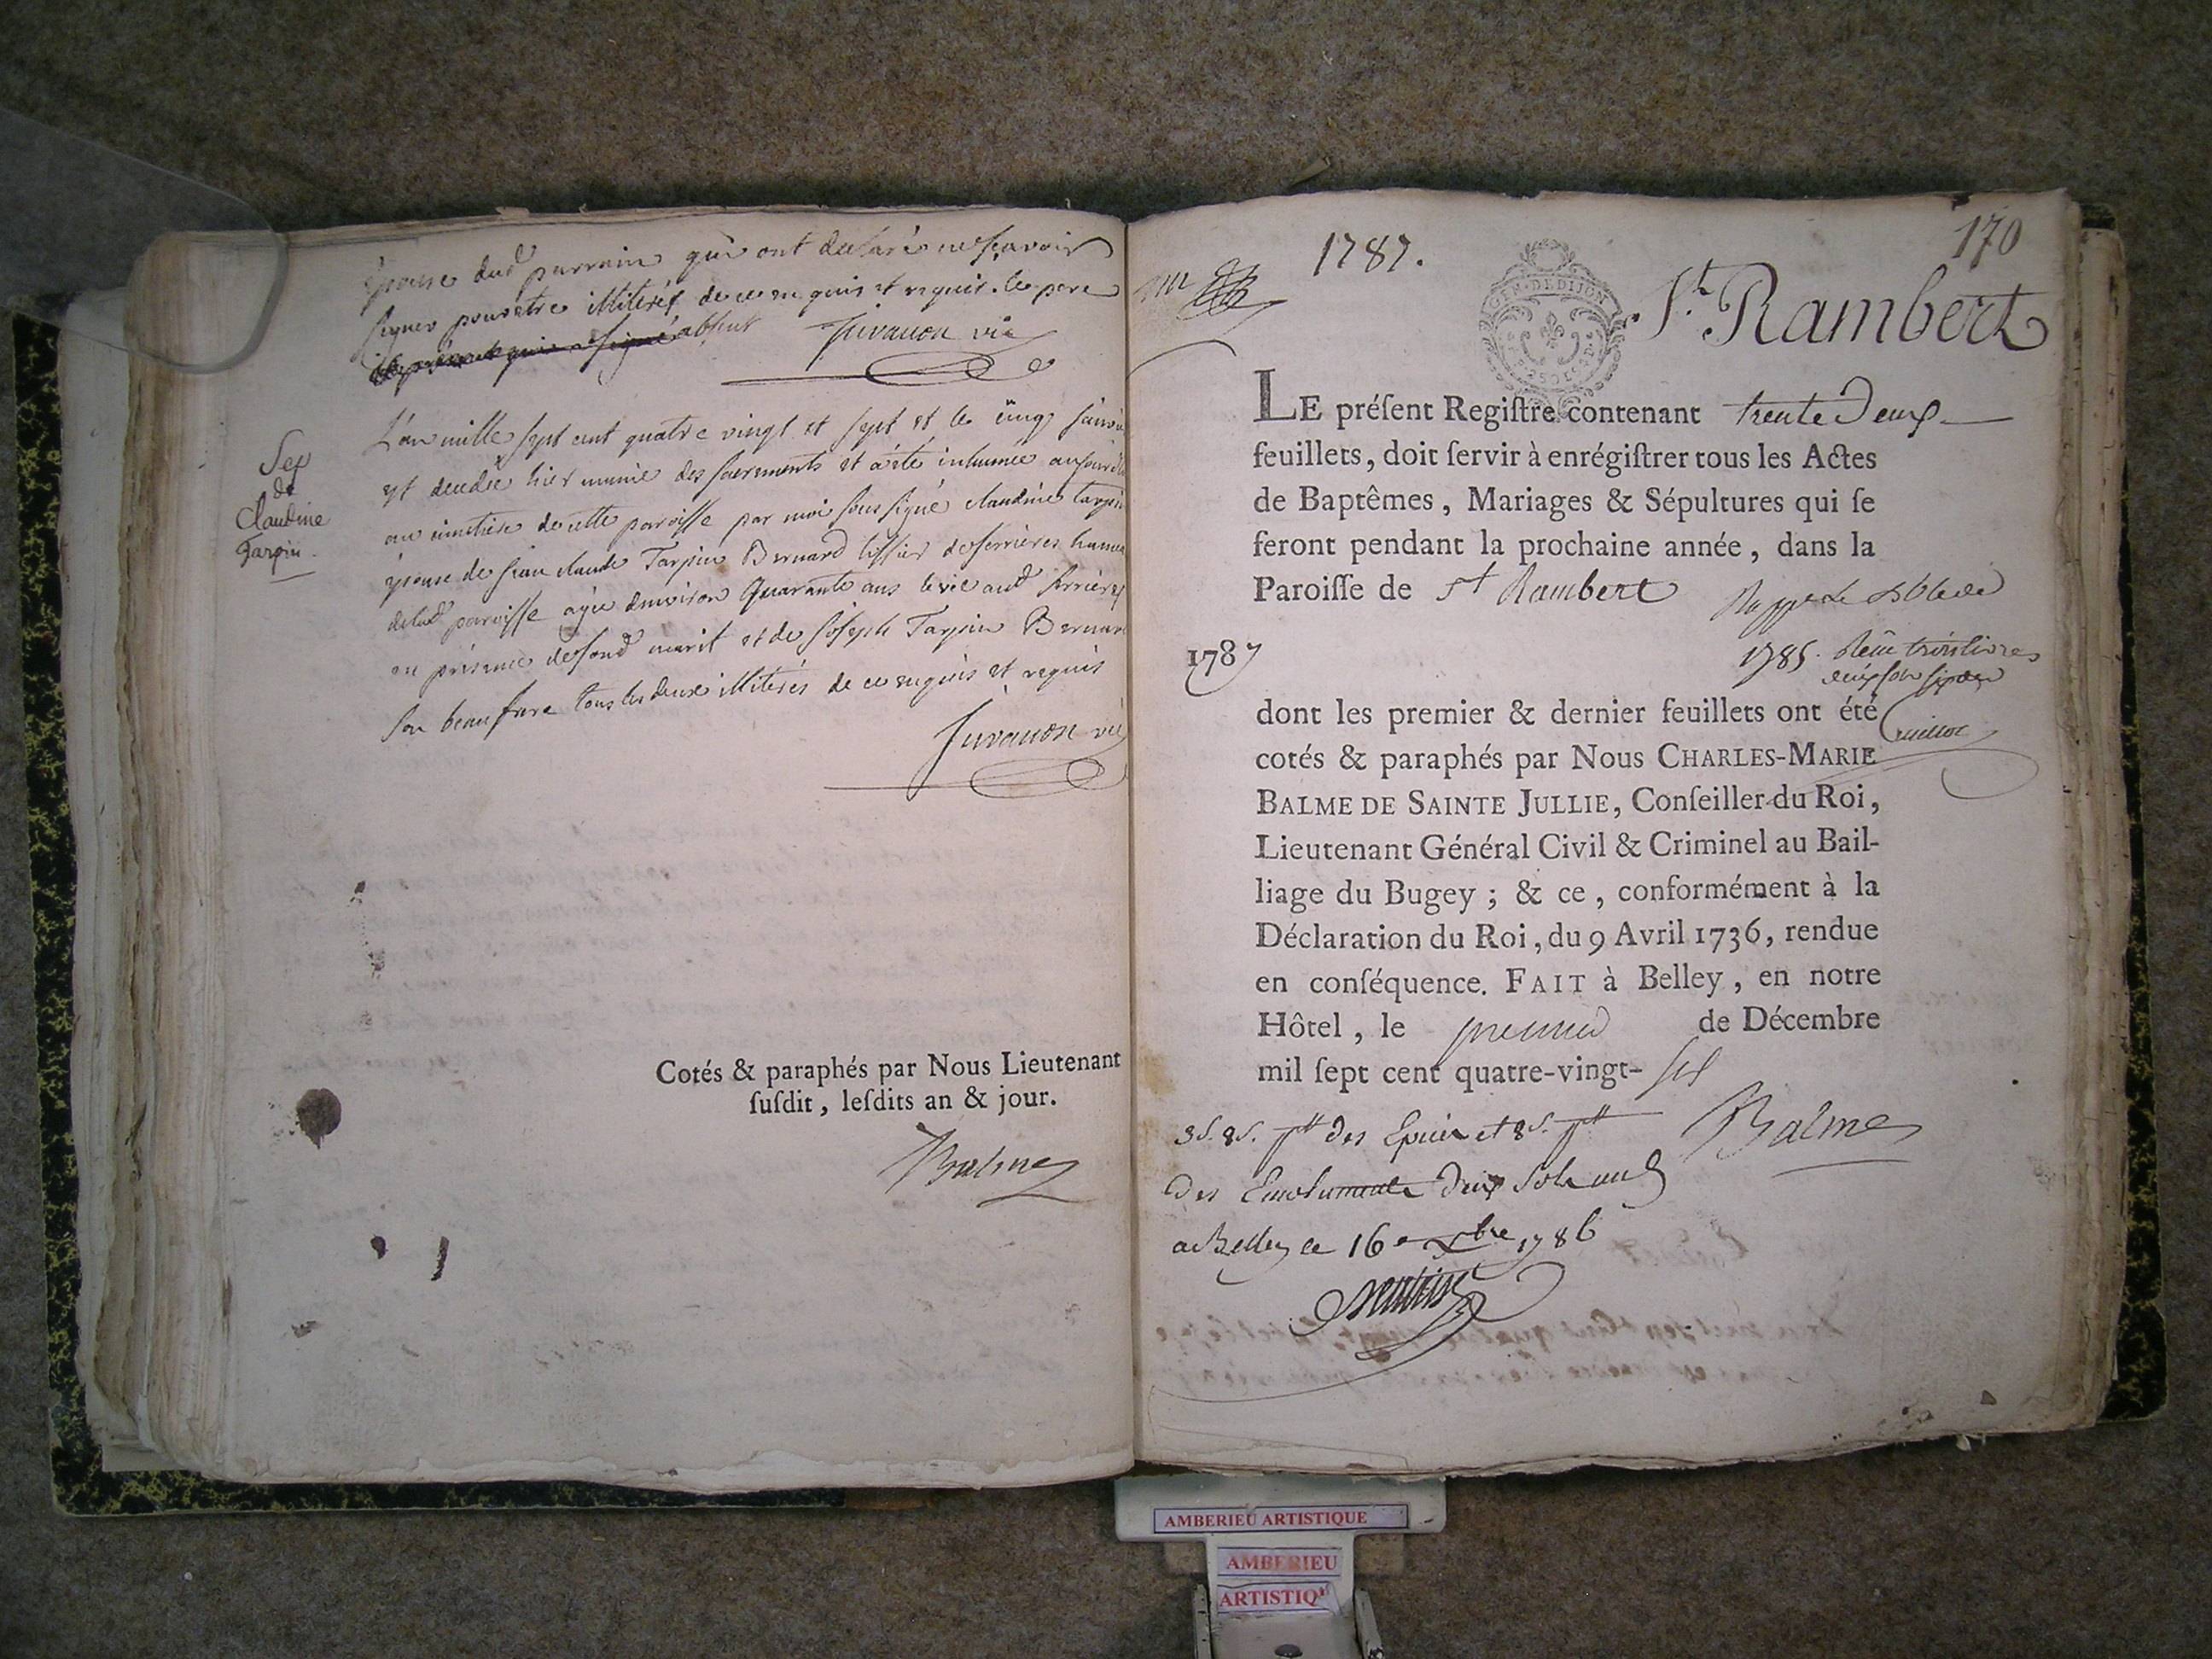 épouse dud parrain qui ont declaré ne sçavoir
signer pour etre illiterés de ce enquis et requis. le pere
absent Juvanon vic
Sep
de
Claudine
Tarpin.
L'an mille sept cent quatre vingt et sept et le cinq janvier
est decedée hier munie des sacrements et a été inhumée aujourd'hui
au cimetiere de cette paroisse par moi soussigné claudine tarpin
épouse de jean claude Tarpin Bernard tissier de serrieres hameau
delad paroisse agée denviron quarante ans le vie aud serrieres
en présence de sond marit et de joseph Tarpin Bernard
son beau frere tous les deux illiterés de ce enquis et requis
Juvanon vic
Cotés & paraphés par Nous Lieutenant
ſuſdit, leſdits an & jour.
Balme
170
1787.
GEN. DE DIJON
St. Rambert
LE préſent Regiſtre contenant trente Deux
feuillets, doit ſervir à enrégiſtrer tous les Actes
de Baptêmes, Mariages & Sépultures qui ſe
feront pendant la prochaine année, dans la
Paroiſſe de St Rambert
1787
1785. Reçu trois livres
deux sols six den
dont les premier & dernier feuillets ont été
cotés & paraphés par Nous CHARLES-MARIE
BALME DE SAINTE JULLIE, Conſeiller du Roi,
Lieutenant Général Civil & Criminel au Bail-
liage du Bugey ; & ce, conformément à la
Déclaration du Roi, du 9 Avril 1736, rendue
en conſéquence. FAIT à Belley, en notre
Hôtel, le premier de Décembre
mil ſept cent quatre-vingt- six
Balme
des Epices et 8s.
Des Emoluments Deux Sols
a Belley ce 16e Xbre 1786
AMBERIEU ARTISTIQUE
AMBERIEU
ARTISTIQ